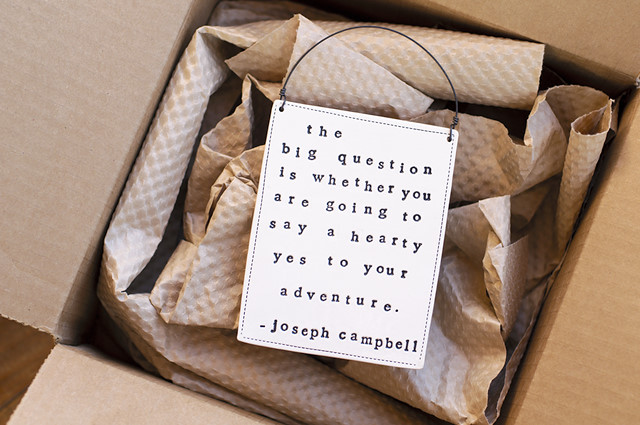 the
big question
is whether you
are going to
say a hearty
yes to your
adventure.
-joseph campbell